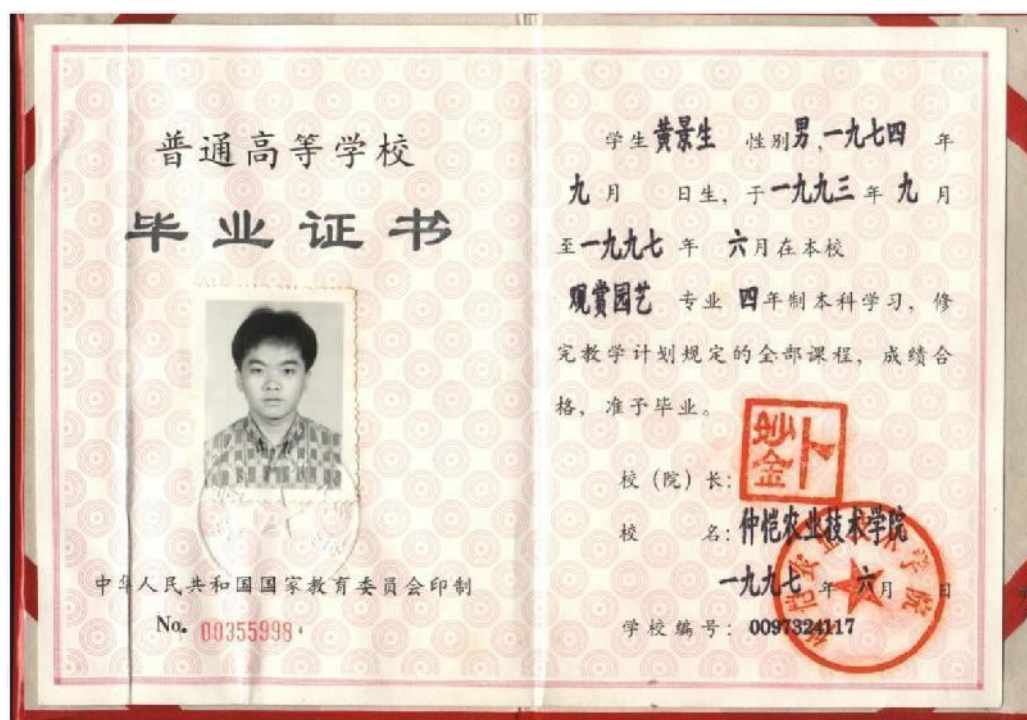 普通高等学校
毕业证书
中华人民共和国国家教育委员会印制
No. 00355998
学生黄景生 性别男,一九七四 年
九月 日生, 于一九九三年九月
至一九九七年 六月在本校
观赏园艺 专业 四年制本科学习, 修
完教学计划规定的全部课程, 成绩合
格, 准予毕业。
校(院)长:
校 名:仲恺农业技术学院
一九九七年 六月 日
学校编号: 0097324117